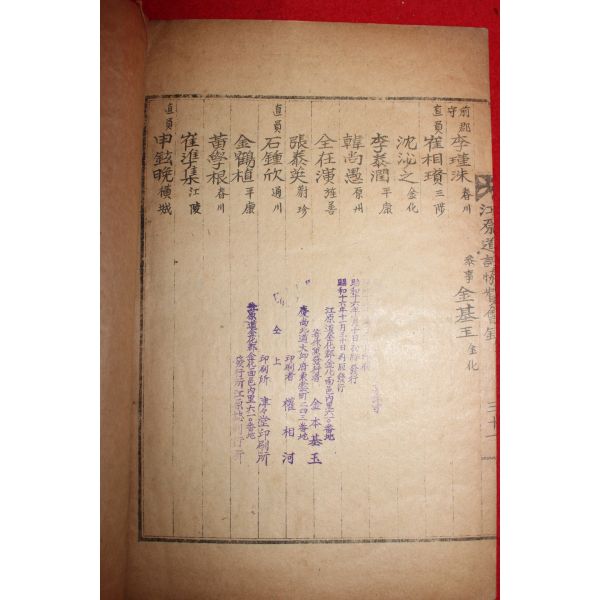 江原道
叅事 金基玉 金化
前郡守 李瑾洙 春川
直員 崔相瓚 三陟
沈泌之 金化
李泰潤 平康
韓尚愚 原州
全在演 旌善
張泰英 蔚珍
直員 石鍾欣 通川
金鶴植 平康
黃學根 春川
崔進集 江陵
直員 申鉉晩 橫城
昭和十六年 月 十日 發行
昭和十六年十二月三十日再版發行
江原道金化郡金化面邑內里六一〇番地
發行者 金本基玉
慶尚北道大邱府東雲町二四三番地
印刷者 權相河
仝上
印刷所 津々堂印刷所
江原道金化郡金化面邑內里六一〇番地
發行所